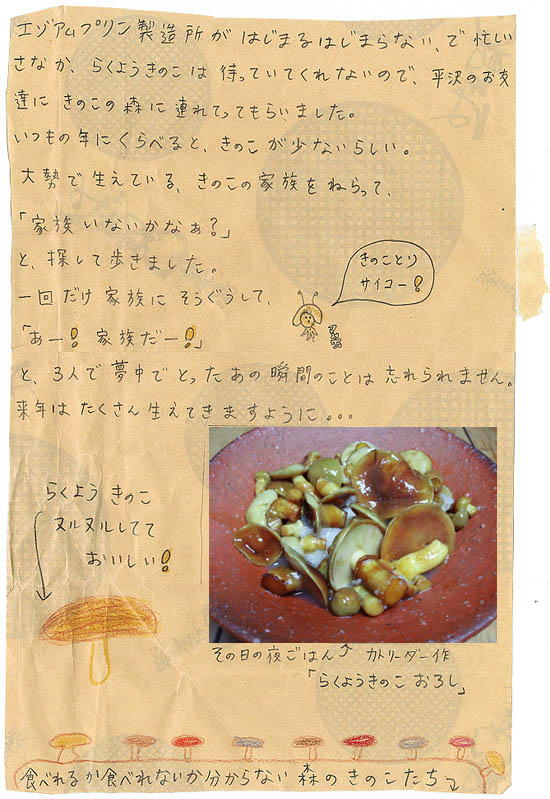 エゾアムプリン製造所が はじまるはじまらない、で 忙し
さなか、らくようきのこは 待っていてくれないので、平沢のお友
達に きのこの森に連れてってもらいました。
いつもの年にくらべると、きのこが少ないらしい。
大勢で生えている、きのこの家族をねらって、
「家族いないかなぁ?」
と、探して歩きました。
一回だけ家族にそうぐうして、
「あー! 家族だー!」
と、3人で夢中でとったあの瞬間のことは忘れられません。
来年はたくさん生えてきますように...
きのことり
サイコー!
らくようきのこ
ヌルヌルしてて
おいしい!
その日の夜ごはん カトリーダー作
「らくようきのこおろし」
食べれるか食べれないか分からない 森のきのこたち